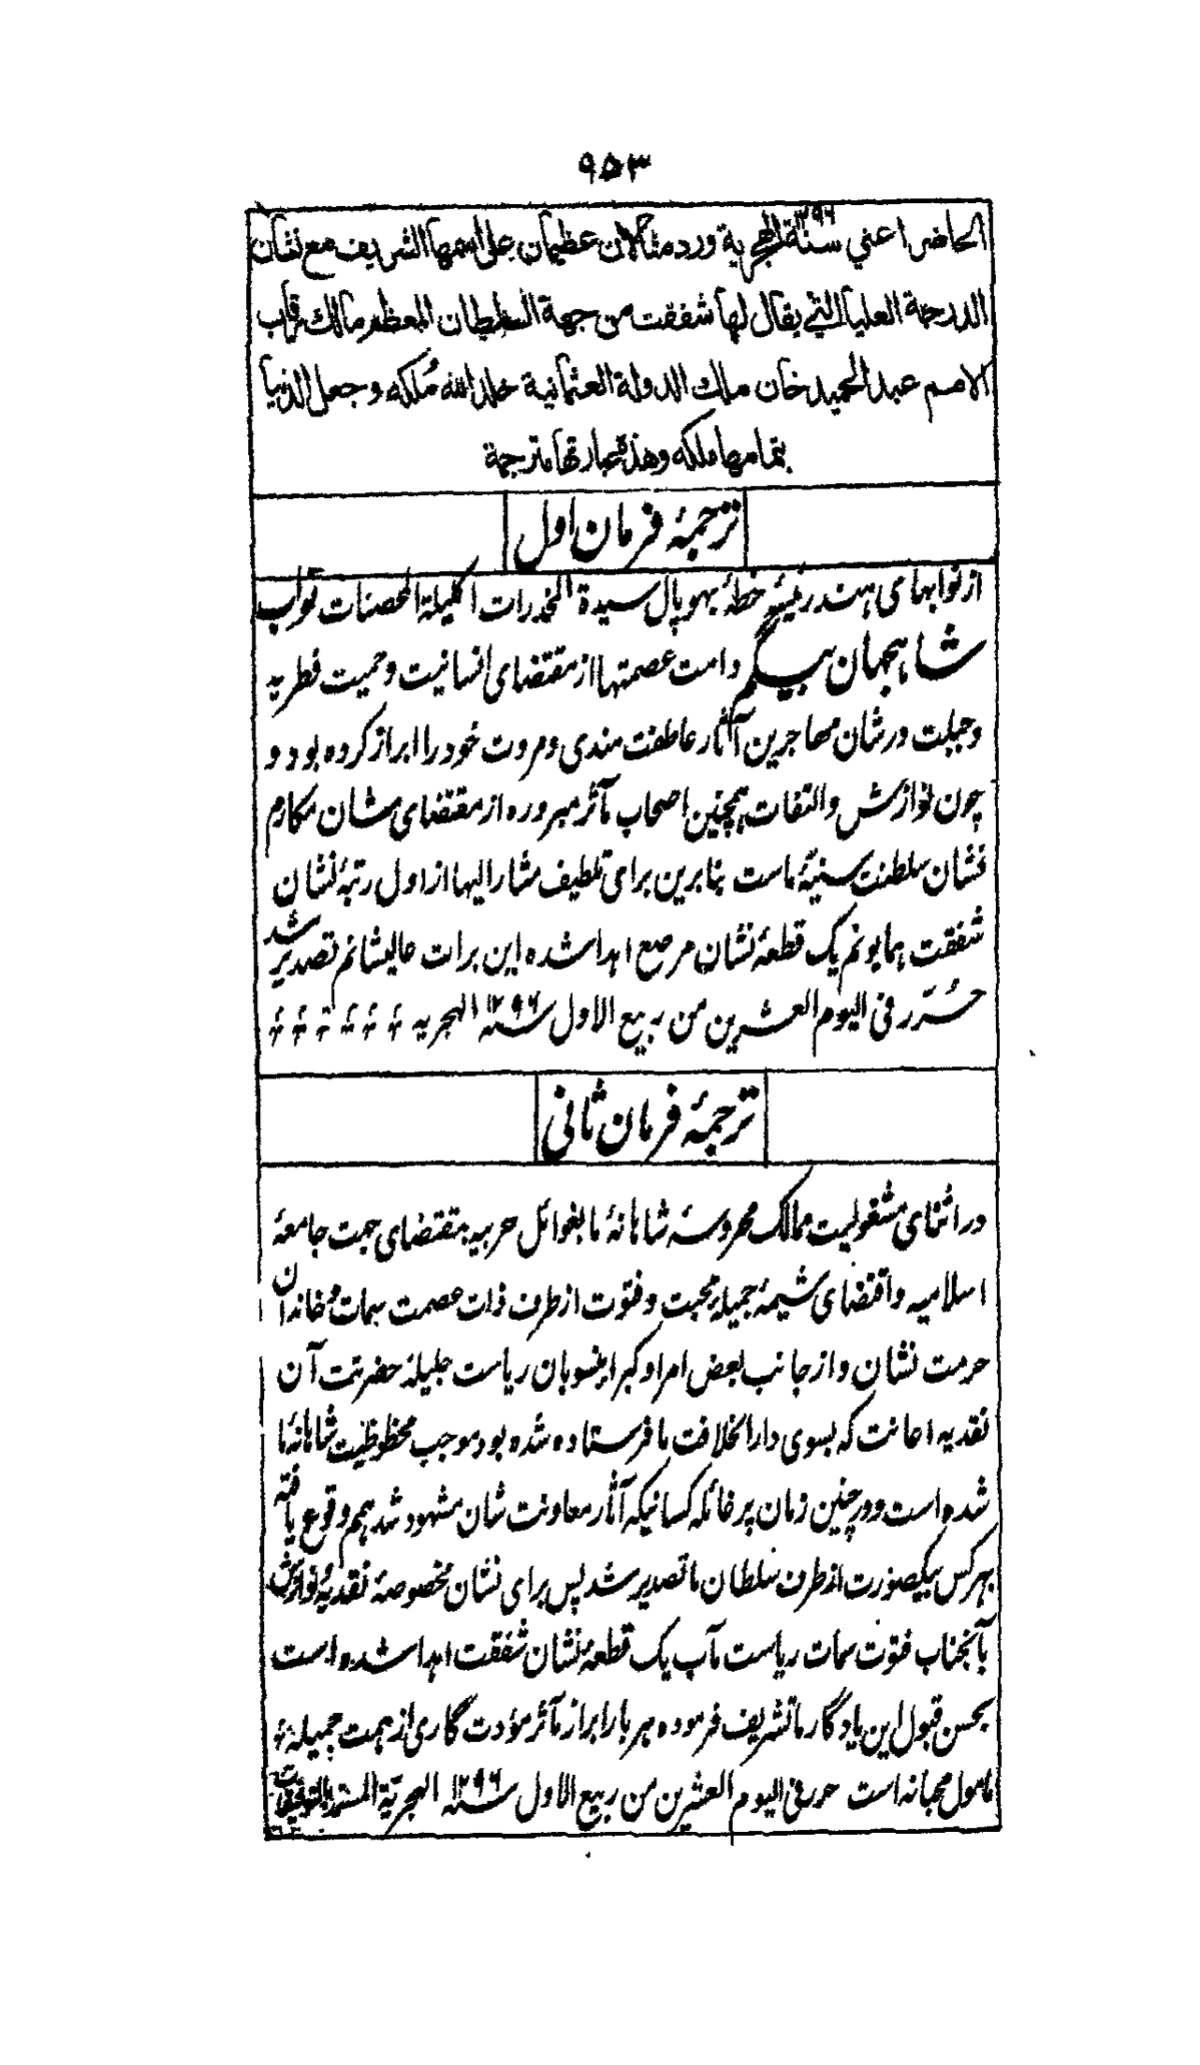 ٩٥٣
الحاضر اعني سنة ١٢٩٦ الهجرية ورد مثالان عظيمان على اسمها الشريف مع نشان
الدرجة العليا التي يقال لها شفقت من جهة السلطان المعظم مالك رقاب
الامم عبد الحميد خان ملك الدولة العثمانية خلد الله مُلكه وجعل الدنيا
بتمامها ملكه وهذه عبارتها مترجمة
ترجمهٔ فرمان اول
از نوابهای هند رئیسهٔ خطهٔ بهوپال سیدة المخدرات اکلیلة المحصنات نواب
شاہجہان بیگم دامت عصمتها از مقتضای انسانیت و حمیت فطریه
و جبلت در شان مهاجرین آثار عاطفت مندی و مروت خود را ابراز کرده بود و
چون نوازش و التفات همچنین اصحاب مآثر مبروره از مقتضای شان مکارم
نشان سلطنت سنیهٔ ماست بنابرین برای تلطیف مشار الیها از اول رتبهٔ نشان
شفقت همایونم یک قطعهٔ نشان مرصع اهدا شده این برات عالیشانم تصدیر شد
حُرّر فی الیوم العشرین من ربیع الاول سنه ١٢٩٦ الهجریه
ترجمهٔ فرمان ثانی
در اثنای مشغولیت ممالک محروسهٔ شاهانهٔ ما بغوائل حربیه بمقتضای جهت جامعهٔ
اسلامیه و اقتضای شیمهٔ جمیله محبت و فتوت از طرف ذات عصمت سمات و خاندان
حرمت نشان و از جانب بعض امرا و کبرا منسوبان ریاست جلیلهٔ حضرتت آن
نقدیه اعانت که بسوی دار الخلافت ما فرستاده شده بود موجب محظوظیت شاهانهٔ ما
شده است و در چنین زمان پر غائله کسانیکه آثار معاونت شان مشهود شد هم وقوع یافته
بهر کس بیکصورت از طرف سلطان ما تصدیر شد پس برای نشان مخصوصهٔ نقدیهٔ نوازش
بآنجناب فتوت سمات ریاست مآب یک قطعهٔ نشان شفقت اهدا شده است
بحسن قبول این یادگار ما تشریف فرموده هر بار ابراز مآثر مؤدت گاری از همت جمیله
مامول محبانه است حرر فی الیوم العشرین من ربیع الاول سنه ١٢٩٦ الهجریّة